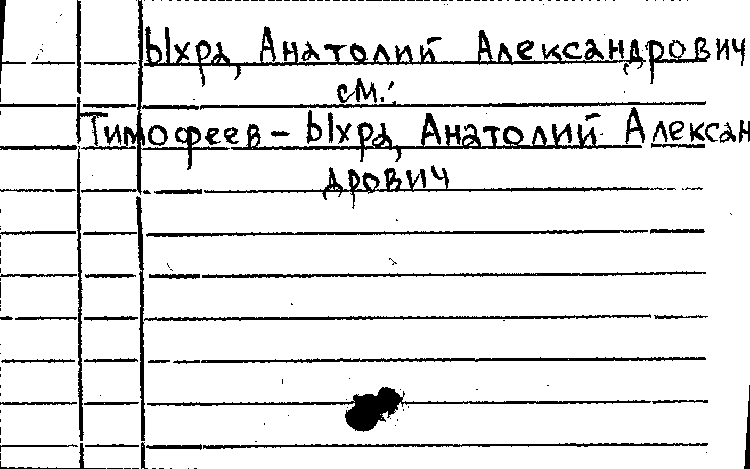 Ыхра, Анатолий Александрович
см.:
Тимофеев - Ыхра, Анатолий Алексан
дрович